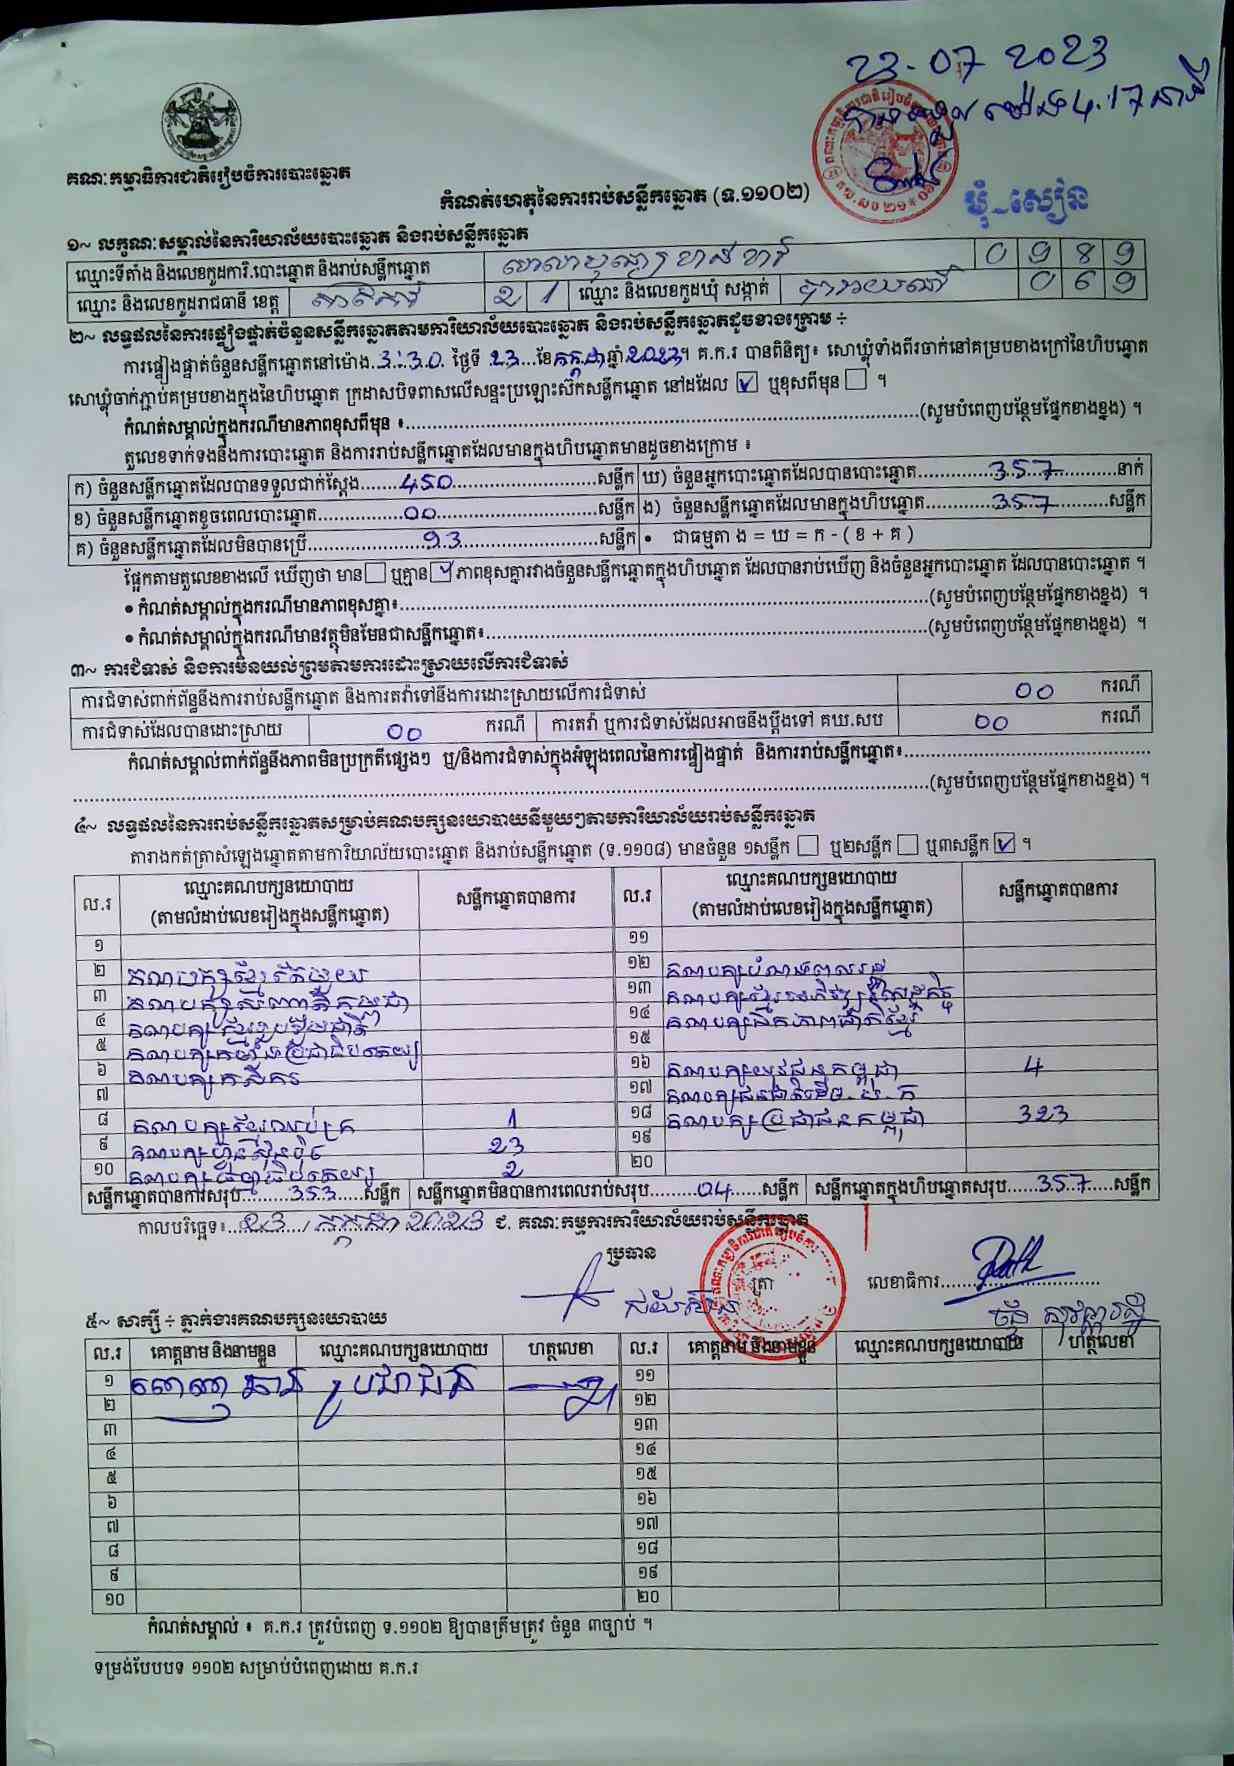 23-07 2023
គណៈកម្មាធិការជាតិរៀបចំការបោះឆ្នោត
កំណត់ហេតុនៃការរាប់សន្លឹកឆ្នោត (ទ.១១០២)
ឃុំ
១~ លក្ខណៈសម្គាល់នៃការិយាល័យបោះឆ្នោត និងរាប់សន្លឹកឆ្នោត
ឈ្មោះទីតាំង និងលេខកូដការិ.បោះឆ្នោត និងរាប់សន្លឹកឆ្នោត 0 9 8 9
ឈ្មោះ និងលេខកូដរាជធានី ខេត្ត តាកែវ 2 1 ឈ្មោះ និងលេខកូដឃុំ សង្កាត់ 0 6 9
២~ លទ្ធផលនៃការផ្ទៀងផ្ទាត់ចំនួនសន្លឹកឆ្នោតតាមការិយាល័យបោះឆ្នោត និងរាប់សន្លឹកឆ្នោតដូចខាងក្រោម ÷
ការផ្ទៀងផ្ទាត់ចំនួនសន្លឹកឆ្នោតនៅម៉ោង 3:30 ថ្ងៃទី 23 ខែ កក្កដា ឆ្នាំ 2023។ គ.ក.រ បានពិនិត្យ៖ សោឃ្លុំទាំងពីរចាក់នៅគម្របខាងក្រៅនៃហិបឆ្នោត
សោឃ្លុំចាក់ភ្ជាប់គម្របខាងក្នុងនៃហិបឆ្នោត ក្រដាសបិទពាសលើសន្ទះប្រឡោះស៊កសន្លឹកឆ្នោត នៅដដែល ☑ ឬខុសពីមុន ☐ ។
កំណត់សម្គាល់ក្នុងករណីមានភាពខុសពីមុន ៖......(សូមបំពេញបន្ថែមផ្នែកខាងខ្នង) ។
តួលេខទាក់ទងនឹងការបោះឆ្នោត និងការរាប់សន្លឹកឆ្នោតដែលមានក្នុងហិបឆ្នោតមានដូចខាងក្រោម ៖
ក) ចំនួនសន្លឹកឆ្នោតដែលបានទទួលជាក់ស្តែង......450......សន្លឹក ឃ) ចំនួនអ្នកបោះឆ្នោតដែលបានបោះឆ្នោត......357......នាក់
ខ) ចំនួនសន្លឹកឆ្នោតខូចពេលបោះឆ្នោត......00......សន្លឹក ង) ចំនួនសន្លឹកឆ្នោតដែលមានក្នុងហិបឆ្នោត......357......សន្លឹក
គ) ចំនួនសន្លឹកឆ្នោតដែលមិនបានប្រើ......93......សន្លឹក • ជាធម្មតា ង = ឃ = ក - ( ខ + គ )
ផ្អែកតាមតួលេខខាងលើ ឃើញថា មាន ☐ ឬគ្មាន ☑ ភាពខុសគ្នារវាងចំនួនសន្លឹកឆ្នោតក្នុងហិបឆ្នោត ដែលបានរាប់ឃើញ និងចំនួនអ្នកបោះឆ្នោត ដែលបានបោះឆ្នោត ។
• កំណត់សម្គាល់ក្នុងករណីមានភាពខុសគ្នា៖......(សូមបំពេញបន្ថែមផ្នែកខាងខ្នង) ។
• កំណត់សម្គាល់ក្នុងករណីមានវត្ថុមិនមែនជាសន្លឹកឆ្នោត៖......(សូមបំពេញបន្ថែមផ្នែកខាងខ្នង) ។
៣~ ការជំទាស់ និងការមិនយល់ព្រមតាមការដោះស្រាយលើការជំទាស់
ការជំទាស់ពាក់ព័ន្ធនឹងការរាប់សន្លឹកឆ្នោត និងការតវ៉ាទៅនឹងការដោះស្រាយលើការជំទាស់ 00 ករណី
ការជំទាស់ដែលបានដោះស្រាយ 00 ករណី ការតវ៉ា ឬការជំទាស់ដែលអាចនឹងប្តឹងទៅ គឃ.សប 00 ករណី
កំណត់សម្គាល់ពាក់ព័ន្ធនឹងភាពមិនប្រក្រតីផ្សេងៗ ឬ/និងការជំទាស់ក្នុងអំឡុងពេលនៃការផ្ទៀងផ្ទាត់ និងការរាប់សន្លឹកឆ្នោត៖......
......(សូមបំពេញបន្ថែមផ្នែកខាងខ្នង) ។
៤~ លទ្ធផលនៃការរាប់សន្លឹកឆ្នោតសម្រាប់គណបក្សនយោបាយនីមួយៗតាមការិយាល័យរាប់សន្លឹកឆ្នោត
តារាងកត់ត្រាសំឡេងឆ្នោតតាមការិយាល័យបោះឆ្នោត និងរាប់សន្លឹកឆ្នោត (ទ.១១០៨) មានចំនួន ១សន្លឹក ☐ ឬ២សន្លឹក ☐ ឬ៣សន្លឹក ☑ ។
ល.រ ឈ្មោះគណបក្សនយោបាយ (តាមលំដាប់លេខរៀងក្នុងសន្លឹកឆ្នោត) សន្លឹកឆ្នោតបានការ ល.រ ឈ្មោះគណបក្សនយោបាយ (តាមលំដាប់លេខរៀងក្នុងសន្លឹកឆ្នោត) សន្លឹកឆ្នោតបានការ
១ ១១
២ គណបក្សខ្មែរតែមួយ ១២
៣ ១៣
៤ គណបក្សខ្មែររួបរួមជាតិ ១៤ គណបក្សឯកភាពជាតិខ្មែរ
៥ ១៥
៦ គណបក្សកសិករ ១៦ គណបក្សយុវជនកម្ពុជា 4
៧ ១៧
៨ 1 ១៨ គណបក្សប្រជាជនកម្ពុជា 323
៩ គណបក្សហ៊្វុនស៊ិនប៉ិច 23 ១៩
១០ 2 ២០
សន្លឹកឆ្នោតបានការសរុប......353......សន្លឹក សន្លឹកឆ្នោតមិនបានការពេលរាប់សរុប......04......សន្លឹក សន្លឹកឆ្នោតក្នុងហិបឆ្នោតសរុប......357......សន្លឹក
កាលបរិច្ឆេទ៖ 23 / កក្កដា 2023 ជ. គណៈកម្មការការិយាល័យរាប់សន្លឹកឆ្នោត
ប្រធាន ត្រា លេខាធិការ......
៥~ សាក្សី ÷ ភ្នាក់ងារគណបក្សនយោបាយ
ល.រ គោត្តនាម និងនាមខ្លួន ឈ្មោះគណបក្សនយោបាយ ហត្ថលេខា ល.រ គោត្តនាម និងនាមខ្លួន ឈ្មោះគណបក្សនយោបាយ ហត្ថលេខា
១ ប្រជាជន ១១
២ ១២
៣ ១៣
៤ ១៤
៥ ១៥
៦ ១៦
៧ ១៧
៨ ១៨
៩ ១៩
១០ ២០
កំណត់សម្គាល់ ៖ គ.ក.រ ត្រូវបំពេញ ទ.១១០២ ឱ្យបានត្រឹមត្រូវ ចំនួន ៣ច្បាប់ ។
ទម្រង់បែបបទ ១១០២ សម្រាប់បំពេញដោយ គ.ក.រ